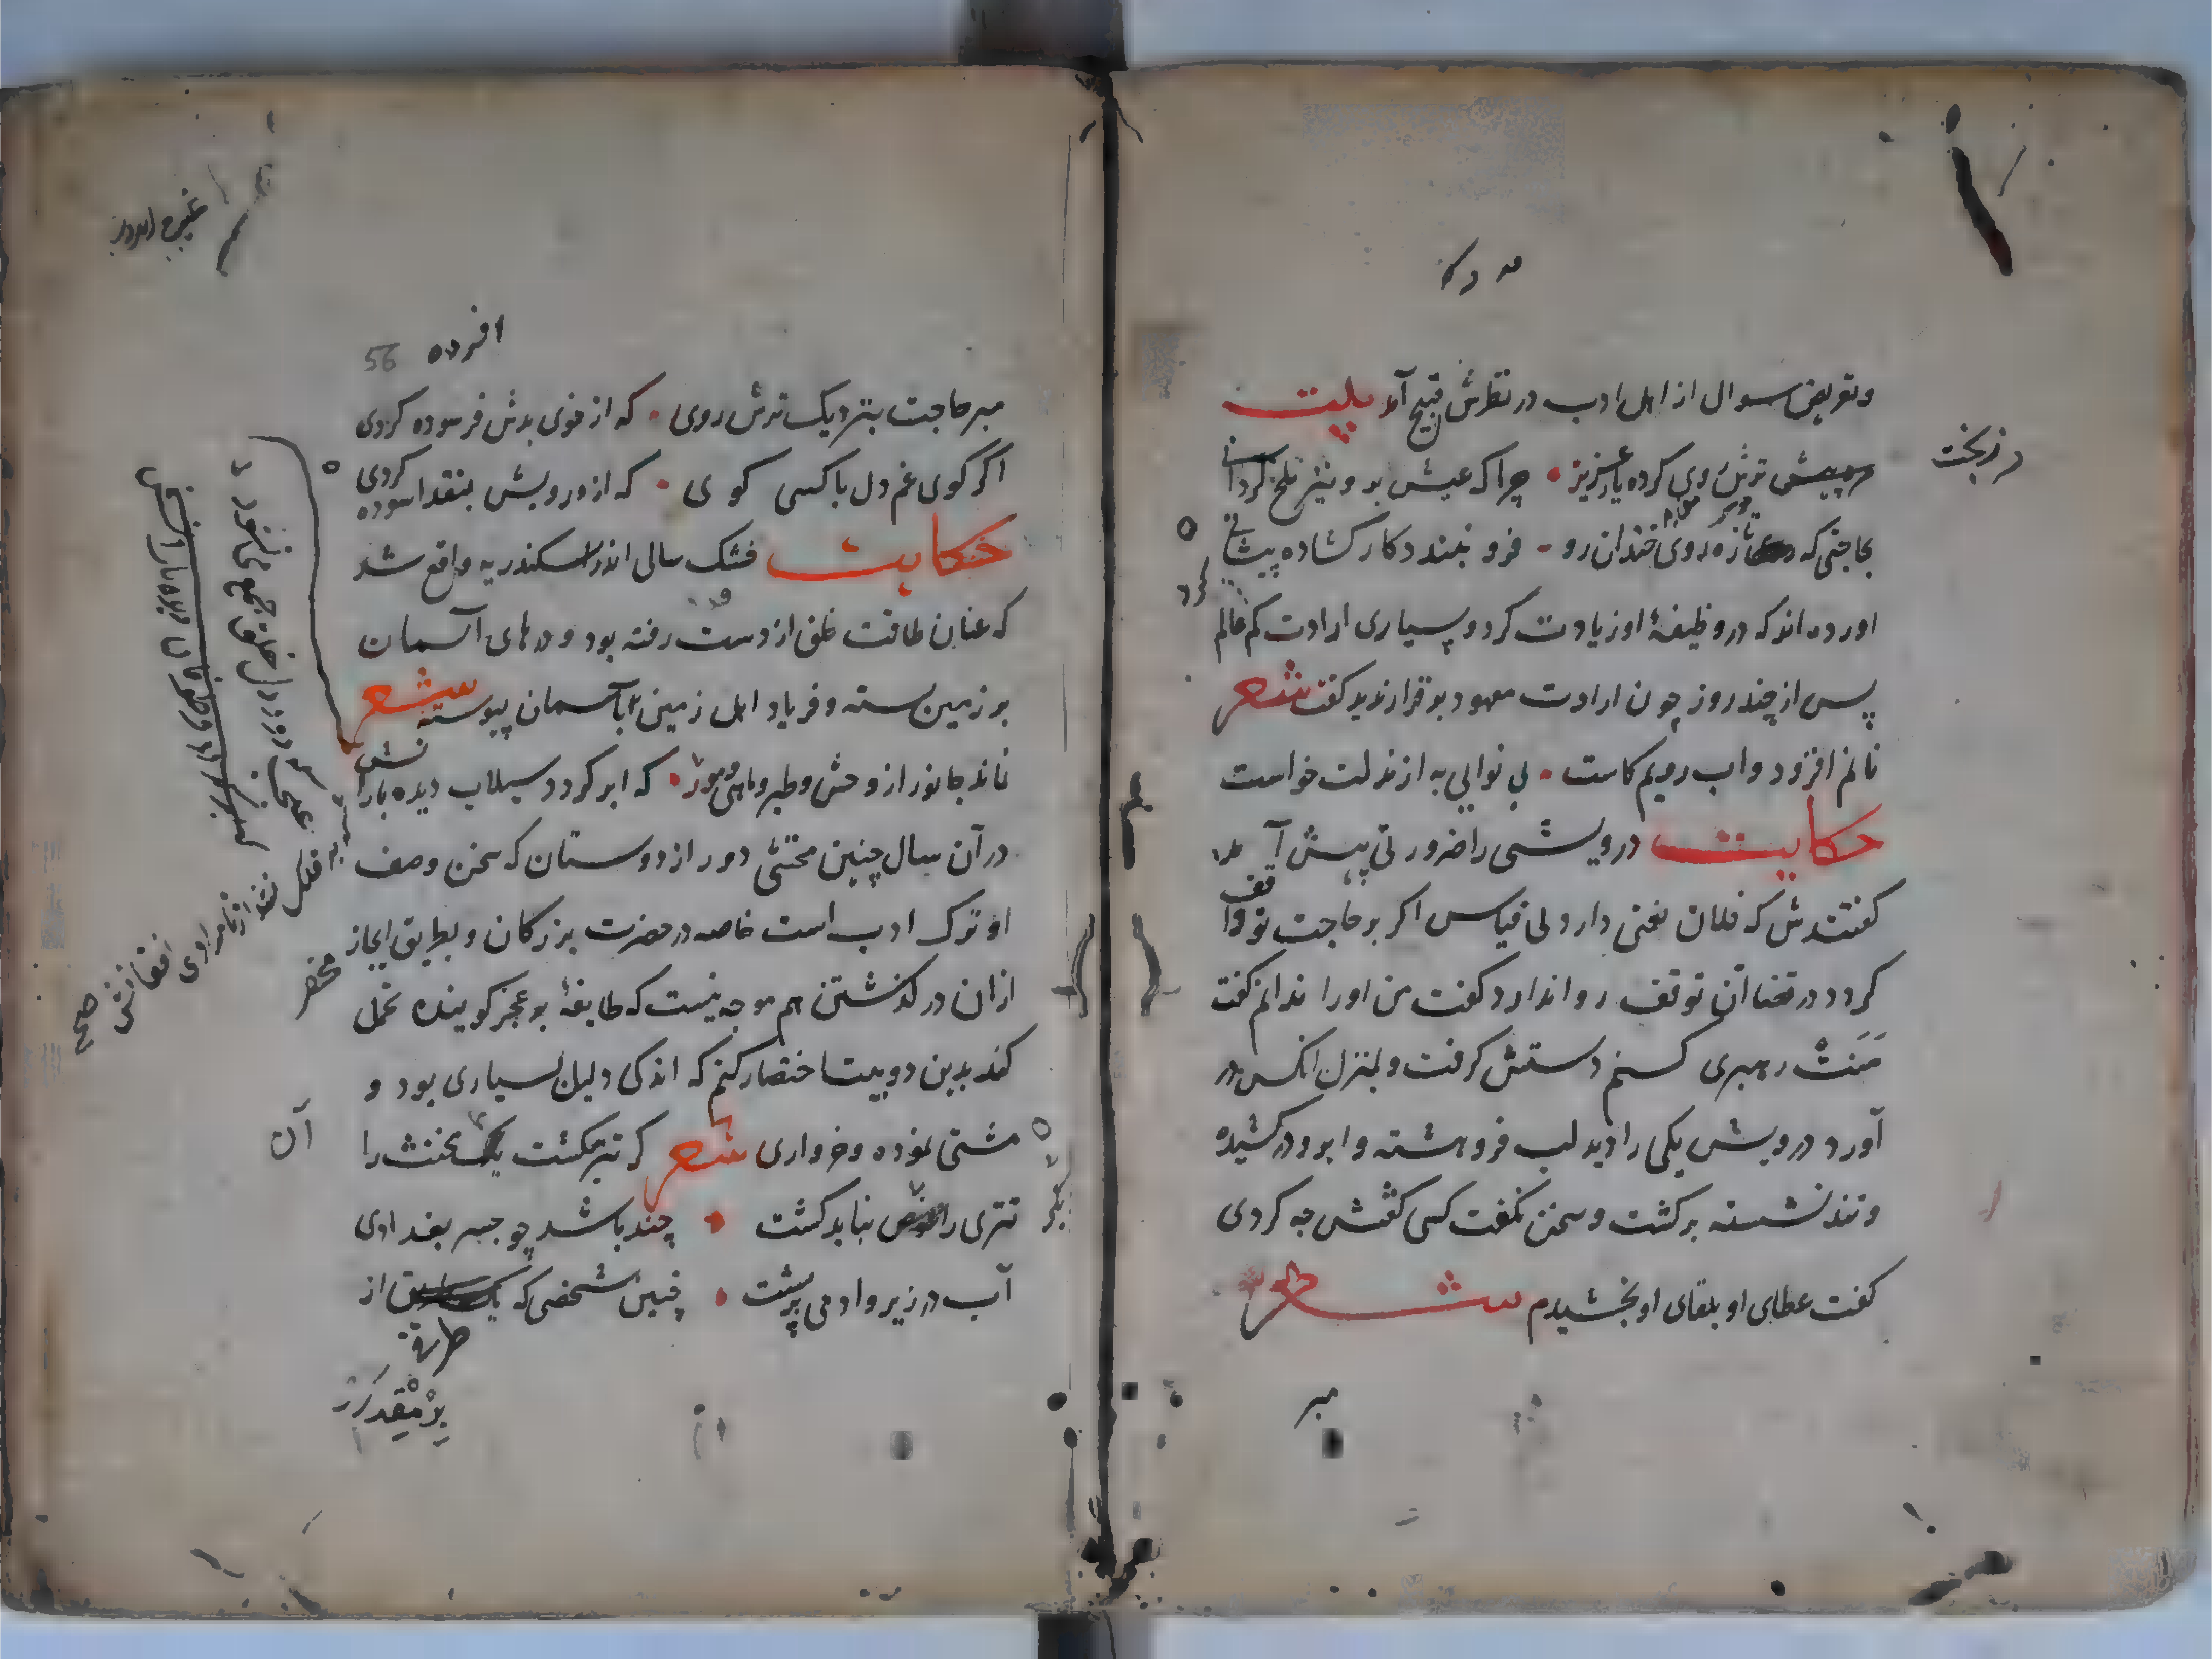 وتعریض سوال از اهل ادب در نظرش قبیح آمد بیت
پیش ترش روی کرده یار عزیز چرا که عیش برو نیز تلخ کردانی
در زبخت
بحاجتی که تازه روی خندان رو فرو نبندد کار کشاده پیشانی
اورده اند که در وظیفۀ او زیادت کرد و بسیاری ارادت کم عالم
پس از چند روز چون ارادت معهود برقرار ندید کفت شعر
نانم افزود و اب رویم کاست بی نوایی به از مذلت خواست
حکایت درویشی را ضرورتی پیش آمد
کفتندش که فلان نعمتی دارد بی قیاس اکر بر حاجت تو واقف
کردد در قضا آن توقف روا ندارد کفت من اورا ندانم کفت
مَنَتْ رهبری کنم دستش کرفت و بمنزل انکس در
آورد درویش یکی را دید لب فروهشته و ابرو درکشیده
و تند نشسته برکشت و سخن نکفت کسی کفتش چه کردی
کفت عطای او بلقای او بخشیدم شعر
مبر
افرده 56
مبر حاجت بنزدیک ترش روی که از خوی بدش فرسوده کردی
اکر کوی غم دل با کسی کوی که از رویش بنقد اسوده کردی
حکایت خشک سالی اندر اسکندریه واقع شد
که عنان طاقت خلق از دست رفته بود و درهای آسمان
بر زمین بسته و فریاد اهل زمین بآسمان پیوسته شعر
نماند جانور از وحش و طیر و ماهی و مور که
بر فلک نشد از نامرادی افغانش صح
که ابر کردد و سیلاب دیده بارانش
در آن سال چنین مخنثی دور از دوستان که سخن وصف
او ترک ادب است خاصه در حضرت بزرکان و بطریق ایجاز
از ان در کذشتن هم موجه نیست که طایفۀ بر عجز کوینده حمل
کنند بدین دو بیت اختصار کنم که اندکی دلیل بسیاری بود و
مشتی نموده خرواری شعر کر تتر بکشت مخنث را
آن
تتری را نباید کشت چند باشد چو جسر بغدادی
دیکر
آب در زیر و ادمی بر پشت چنین شخصی که یک از
طرفة